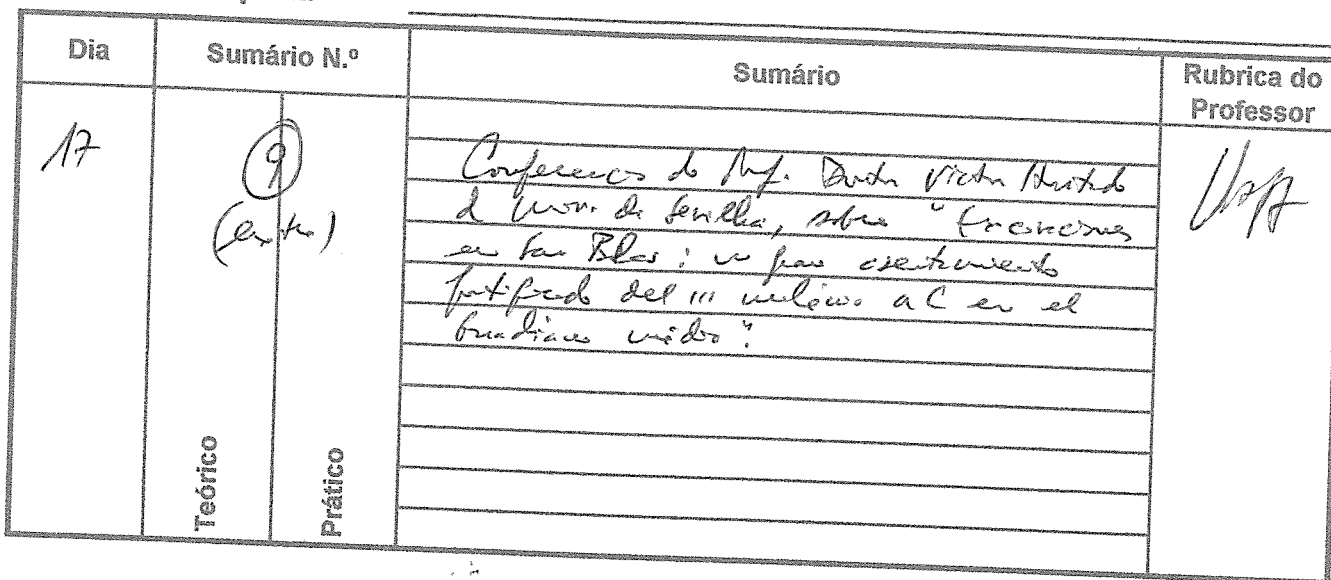 Dia
Sumário N.º
Sumário
Rubrica do
Professor
17
9
(extra)
Conferência do Prof. Doutor Victor Hurtado
da Univ. de Sevilha, sobre "Excavaciones
en San Blas: un gran asentamiento
fortificado del III milenio a C en el
Guadiana medio".
Teórico
Prático